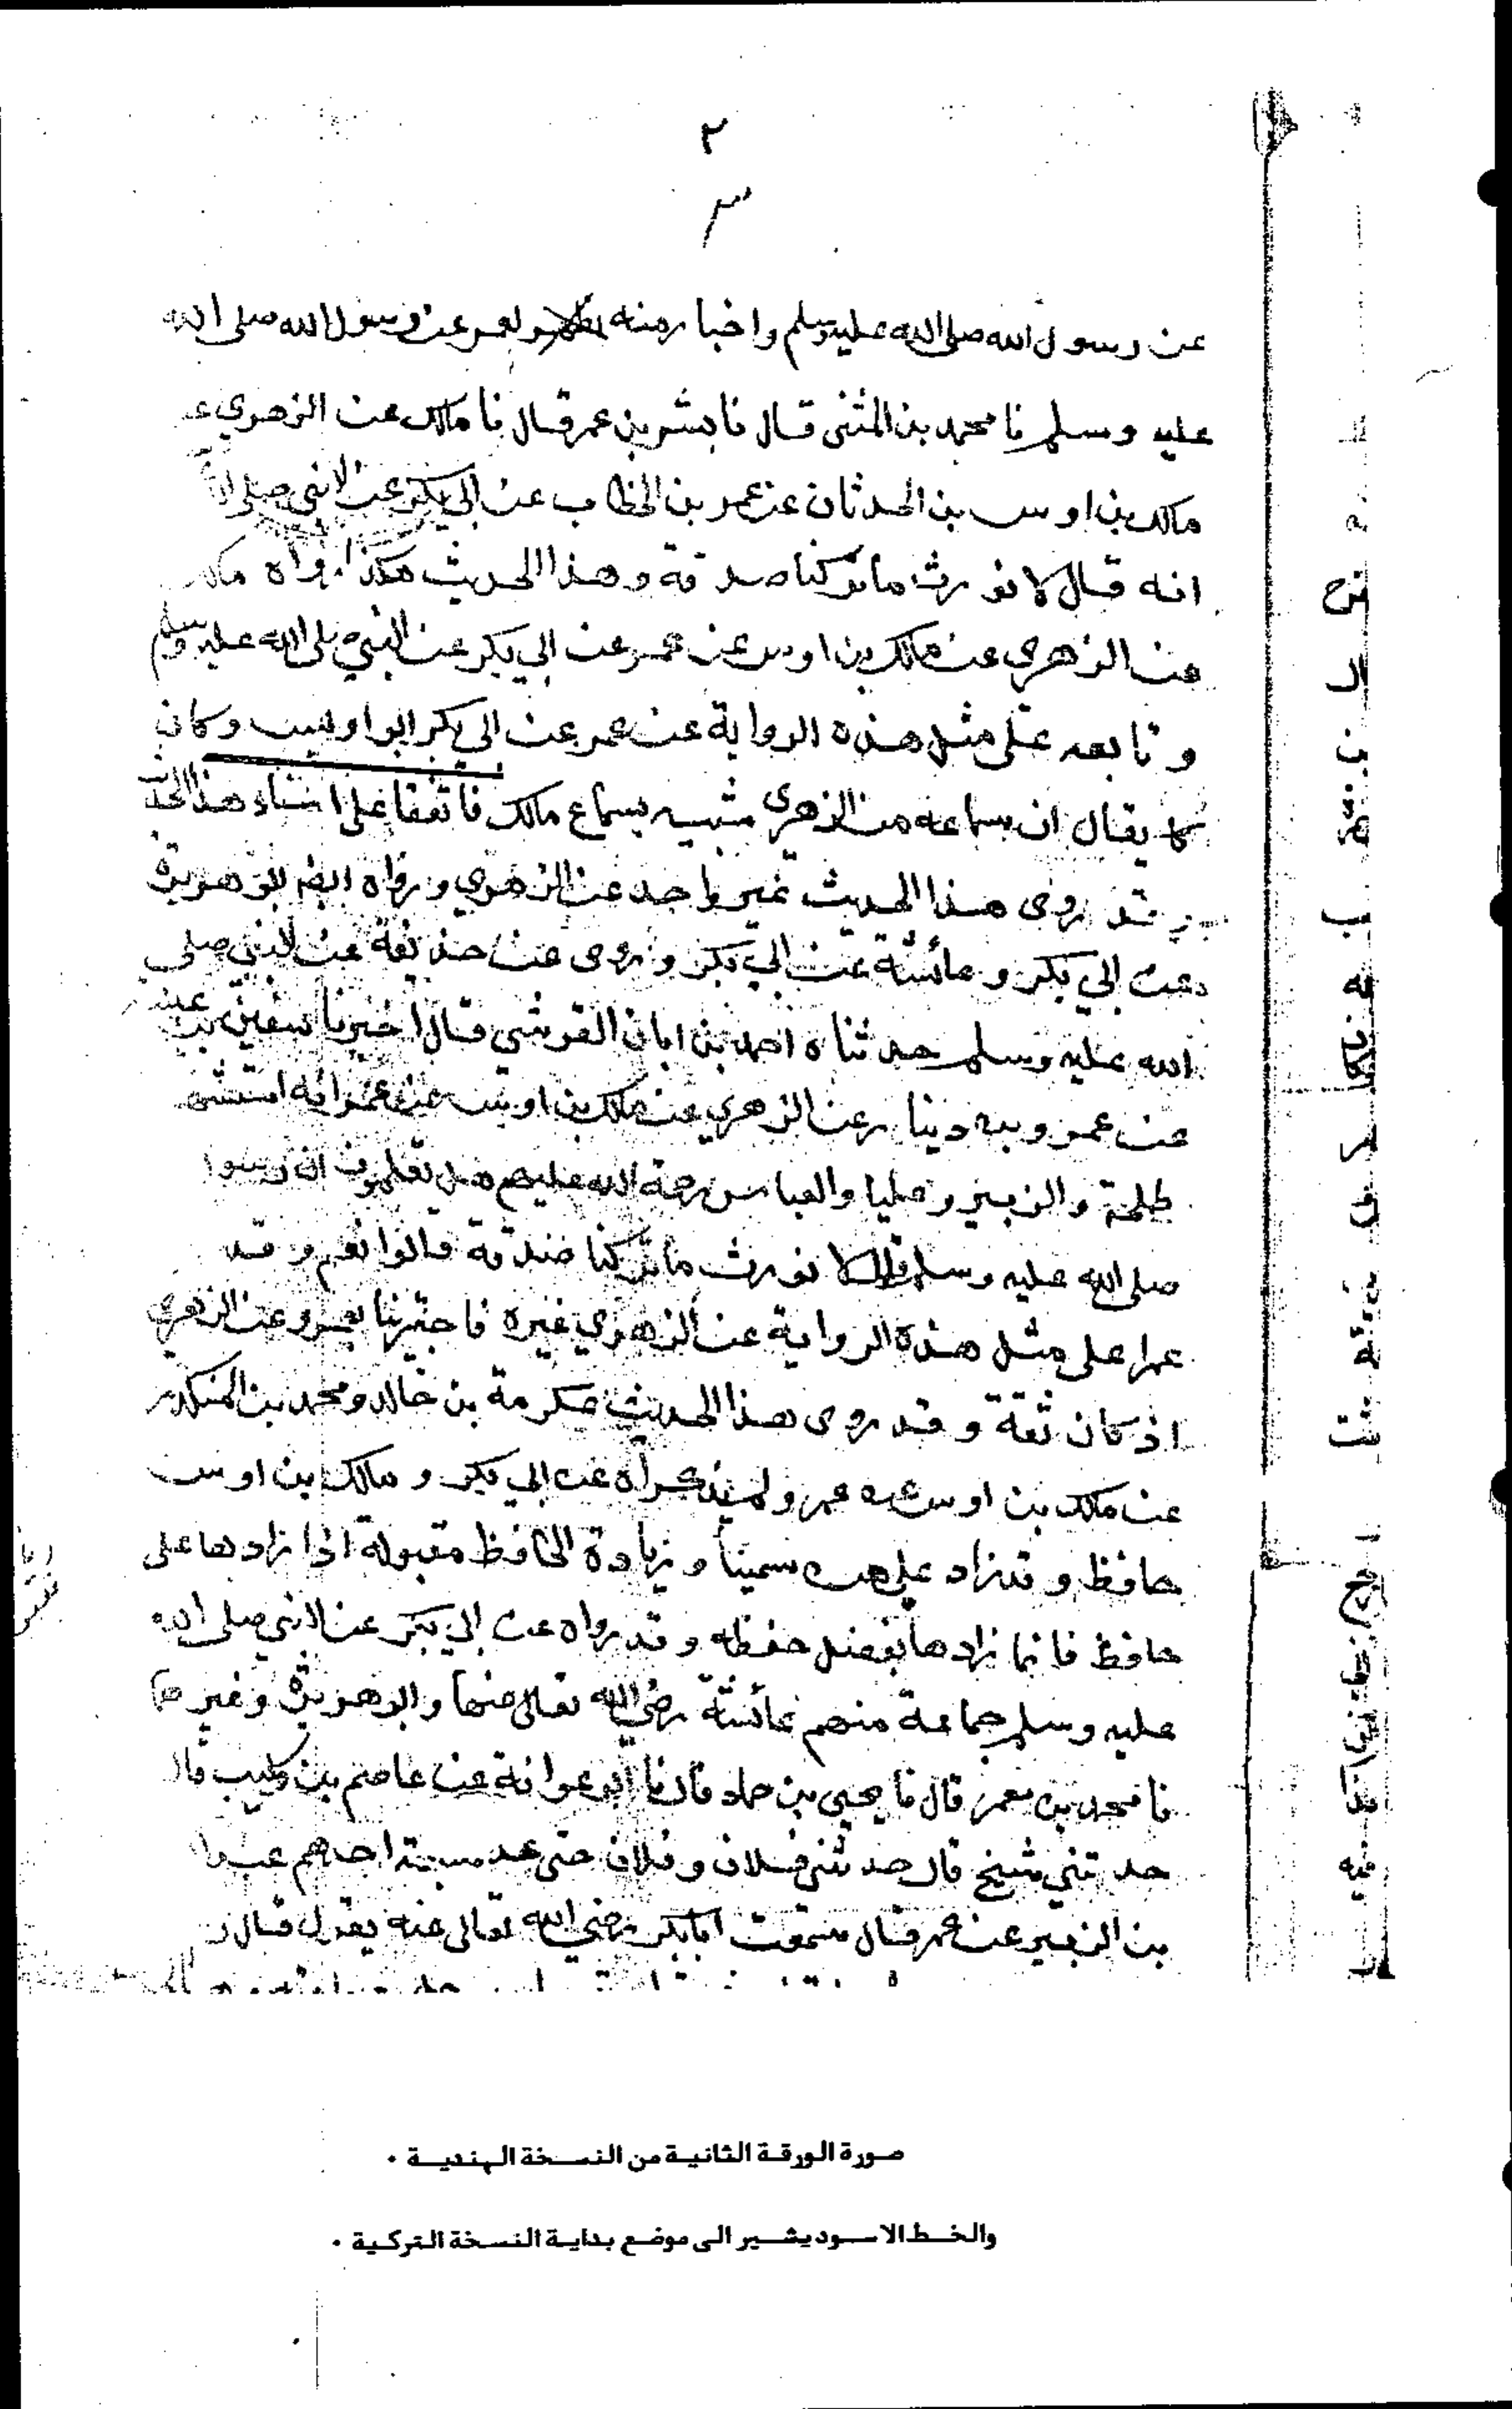 ٢
٣
عن رسول الله صلى الله عليه وسلم واخبار منه لعمر عن رسول الله صلى الله
عليه وسلم نا محمد بن المثنى قال نا بشر بن عمر قال نا مالك عن الزهري عـ
مالك بن اوس بن الحدثان عن عمر بن الخطاب عن ابي بكر عن النبي صلى الله
انه قال لا نورث ما تركنا صدقة وهذا الحديث هكذا رواه مالك
عن الزهري عن مالك بن اوس عن عمر عن ابي بكر عن النبي صلى الله عليه وسلم
وتابعه على مثل هذه الرواية عن عمر عن ابي بكر ابو اويس وكان
يقال ان سماعه من الزهري شبيه بسماع مالك فاتفقا على اسناد هذا الحديث
وقد روى هذا الحديث غير واحد عن الزهري ورواه ايضا ابو هريرة
عن ابي بكر وعائشة عن ابي بكر وروى عن حذيفة عن النبي صلى
الله عليه وسلم حدثناه احمد بن ابان القرشي قال اخبرنا سفين بن
عن عمرو بن دينار عن الزهري عن مالك بن اوس عن عمر انه
طلحة والزبير وعليا والعباس رحمة الله عليهم هل تعلمون ان رسول
صلى الله عليه وسلم قال لا نورث ما تركنا صدقة قالوا نعم وقد
عمرا على مثل هذه الرواية عن الزهري غيره فاجتزينا بعمرو عن الزهري
اذ كان ثقة وقد روى هذا الحديث عكرمة بن خالد ومحمد بن المنكدر
عن مالك بن اوس عن عمر ولم يذكراه عن ابي بكر ومالك بن اوس
حافظ وقد زاد على من سمينا وزيادة الحافظ مقبولة اذا زادها على
حافظ فانما زادها بفضل حفظه وقد رواه عن ابي بكر عن النبي صلى الله
عليه وسلم جماعة منهم عائشة رضي الله تعالى عنها وابو هريرة وغيرهما
نا محمد بن معمر قال نا يحيى بن حماد قال نا ابو عوانة عن عاصم بن كليب قال
حدثني شيخ قال حدثني فلان وفلان حتى عد سبعة احدهم عبد الله
بن الزبير عن عمر قال سمعت ابا بكر رضي الله تعالى عنه يقول قال ر
صورة الورقة الثانية من النسخة الهندية .
والخط الاسود يشير الى موضع بداية النسخة التركية .